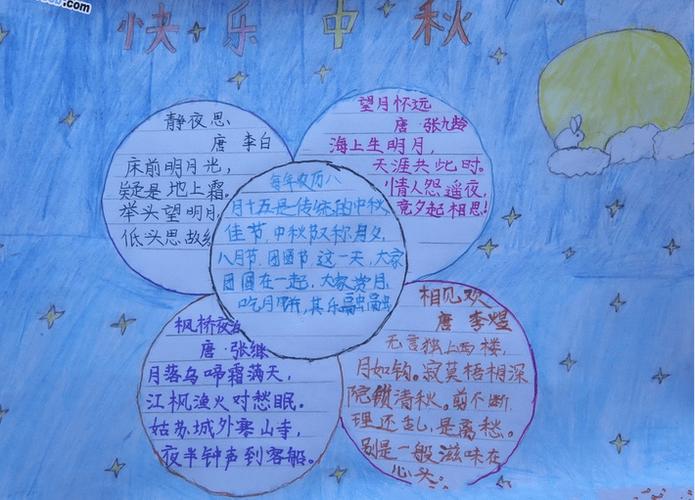 .com
快乐中秋
静夜思
唐 李白
床前明月光,
疑是地上霜。
举头望明月,
低头思故
望月怀远
唐 张九龄
海上生明月,
天涯共此时。
情人怨遥夜,
竞夕起相思!
每年农历八
月十五是传统的中秋
佳节,中秋又称月夕,
八月节,团圆节,这一天,大家
团圆在一起,大家赏月,
吃月饼,其乐融融
枫桥夜泊
唐·张继
月落乌啼霜满天,
江枫渔火对愁眠。
姑苏城外寒山寺,
夜半钟声到客船。
相见欢
唐 李煜
无言独上西楼,
月如钩。寂寞梧桐深
院锁清秋。剪不断,
理还乱,是离愁。
别是一般滋味在
心头。